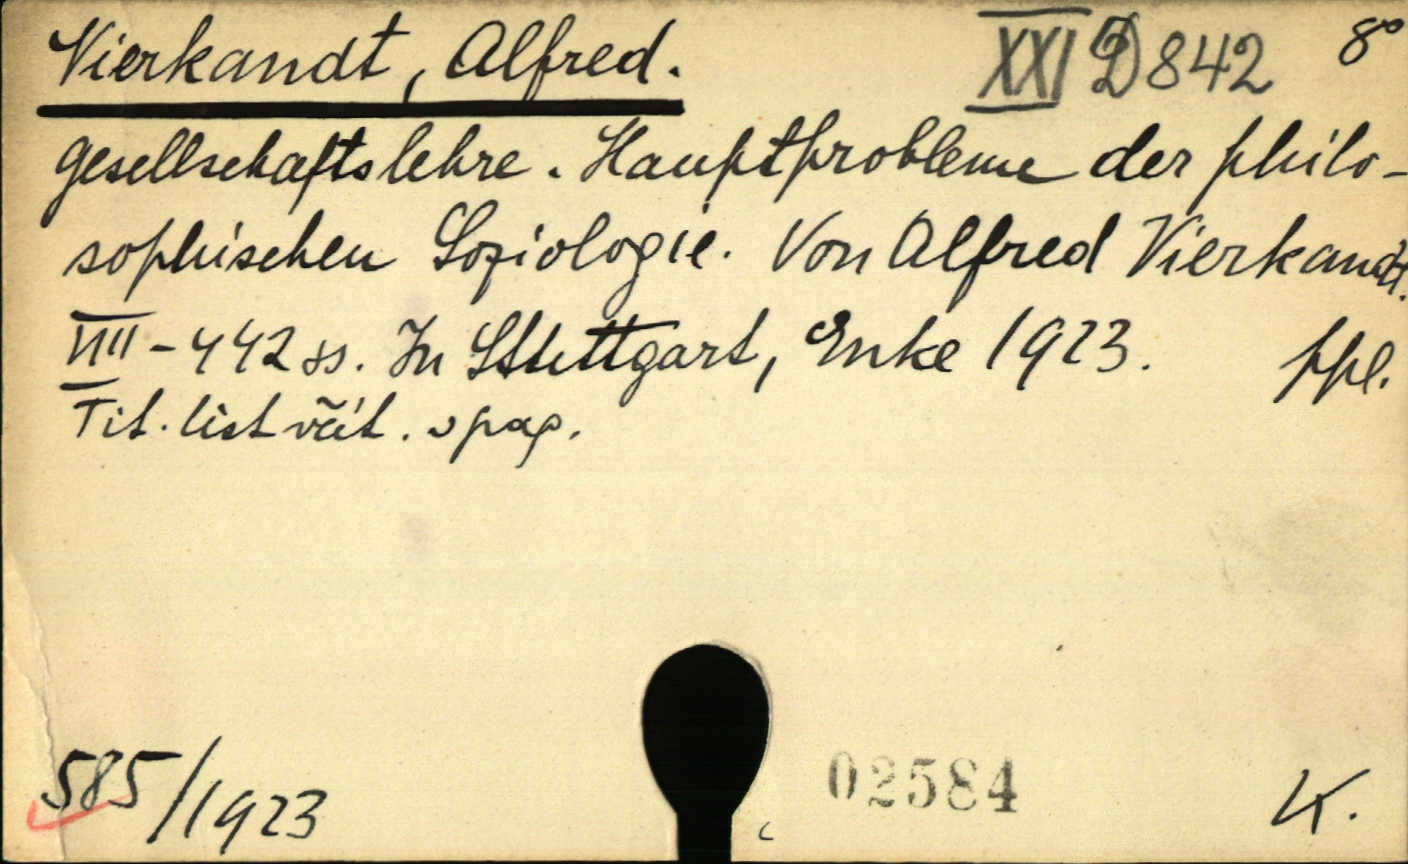 Vierkandt, Alfred. XXI D 842 8°
Gesellschaftslehre. Hauptprobleme der philo-
sophischen Soziologie. Von Alfred Vierkandt.
VIII - 442 ss. In Stuttgart, Enke 1923. ppl.
Tit. list věit. v pag.
585/1923 02584 K.